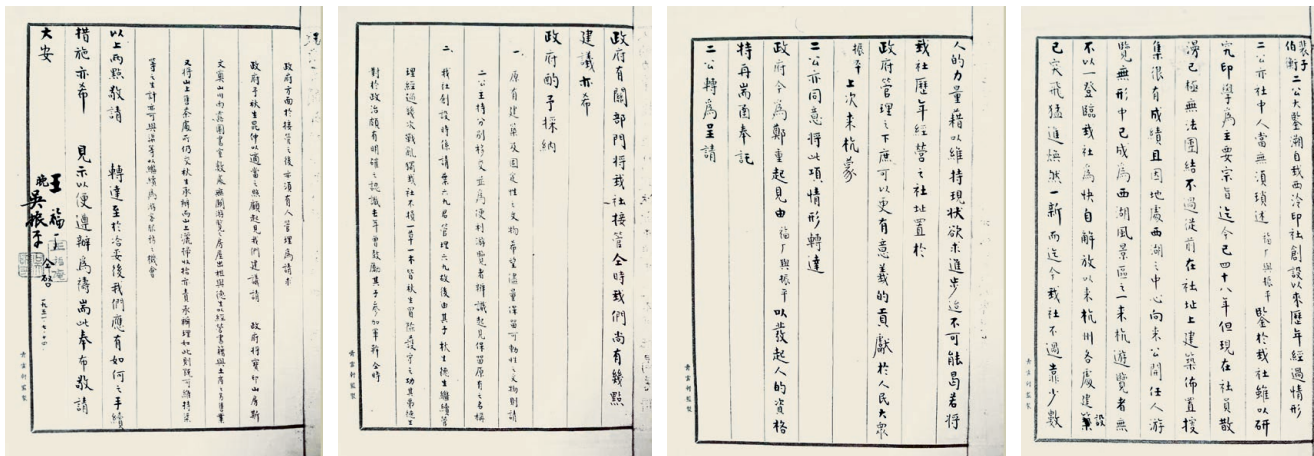 裴子
伯衡 二公大鑒溯自我西泠印社創設以來歷年經過情形
二公亦社中人當無須瑣述 福厂與振平 鑒於我社雖以研
究印學為主要宗旨迄今已四十八年但現在社員散
漫已極無法團結不過從前在社址上建築佈置搜
集很有成績且因地處西湖之中心向來公開任人游
覽無形中已成為西湖風景區之一來杭遊覽者無
不以一登臨我社為快自解放以來杭州各處建設
已突飛猛進煥然一新而迄今我社不過靠少數
人的力量藉以維持現狀欲求進步迨不可能曷若將
我社歷年經營之社址置於
政府管理之下庶可以更有意義的貢獻於人民大眾
振平 上次來杭蒙
二公亦同意將此項情形轉達
政府今為鄭重起見由 福厂與振平 以發起人的資格
特再耑函奉託
二公轉為呈請
政府有關部門將我社接管仝時我們尚有幾點
建議亦希
政府酌予採納
一、原有建築及固定性之文物希望儘量保留可動性之文物則請
二公主持分別移交並為便利游覽者辨識起見保留原有之名稱
二、我社創設時係請葉六九君管理六九故後由其子秋生德生繼續管
理經過幾次戰亂獨我社不損一草一木皆秋生冒險設守之功其弟德生
對於政治頗有明確之認識去年曾鼓勵其子參加軍幹仝時
政府方面於接管之後亦須有人管理為請求
政府予秋生昆仲以適當之照顧起見我們建議請 政府將寶印山房斯
文奧山川雨露圖書室數處無關游覽之房屋出租與德生以經營書籍與土產之負責業
又將山上售茶處亦仍交秋生承辦而山上灑掃收拾亦責承辦理如此則既可維持渠
等之生計亦可與渠等以繼續為游客服務之機會
以上兩點敬請 轉達至於洽妥後我們應有如何之手續
措施亦希 見示以便遵辦為禱耑此奉布敬請
大安
王福厂
晚 吳振平 仝啓 一九五一、七、十四